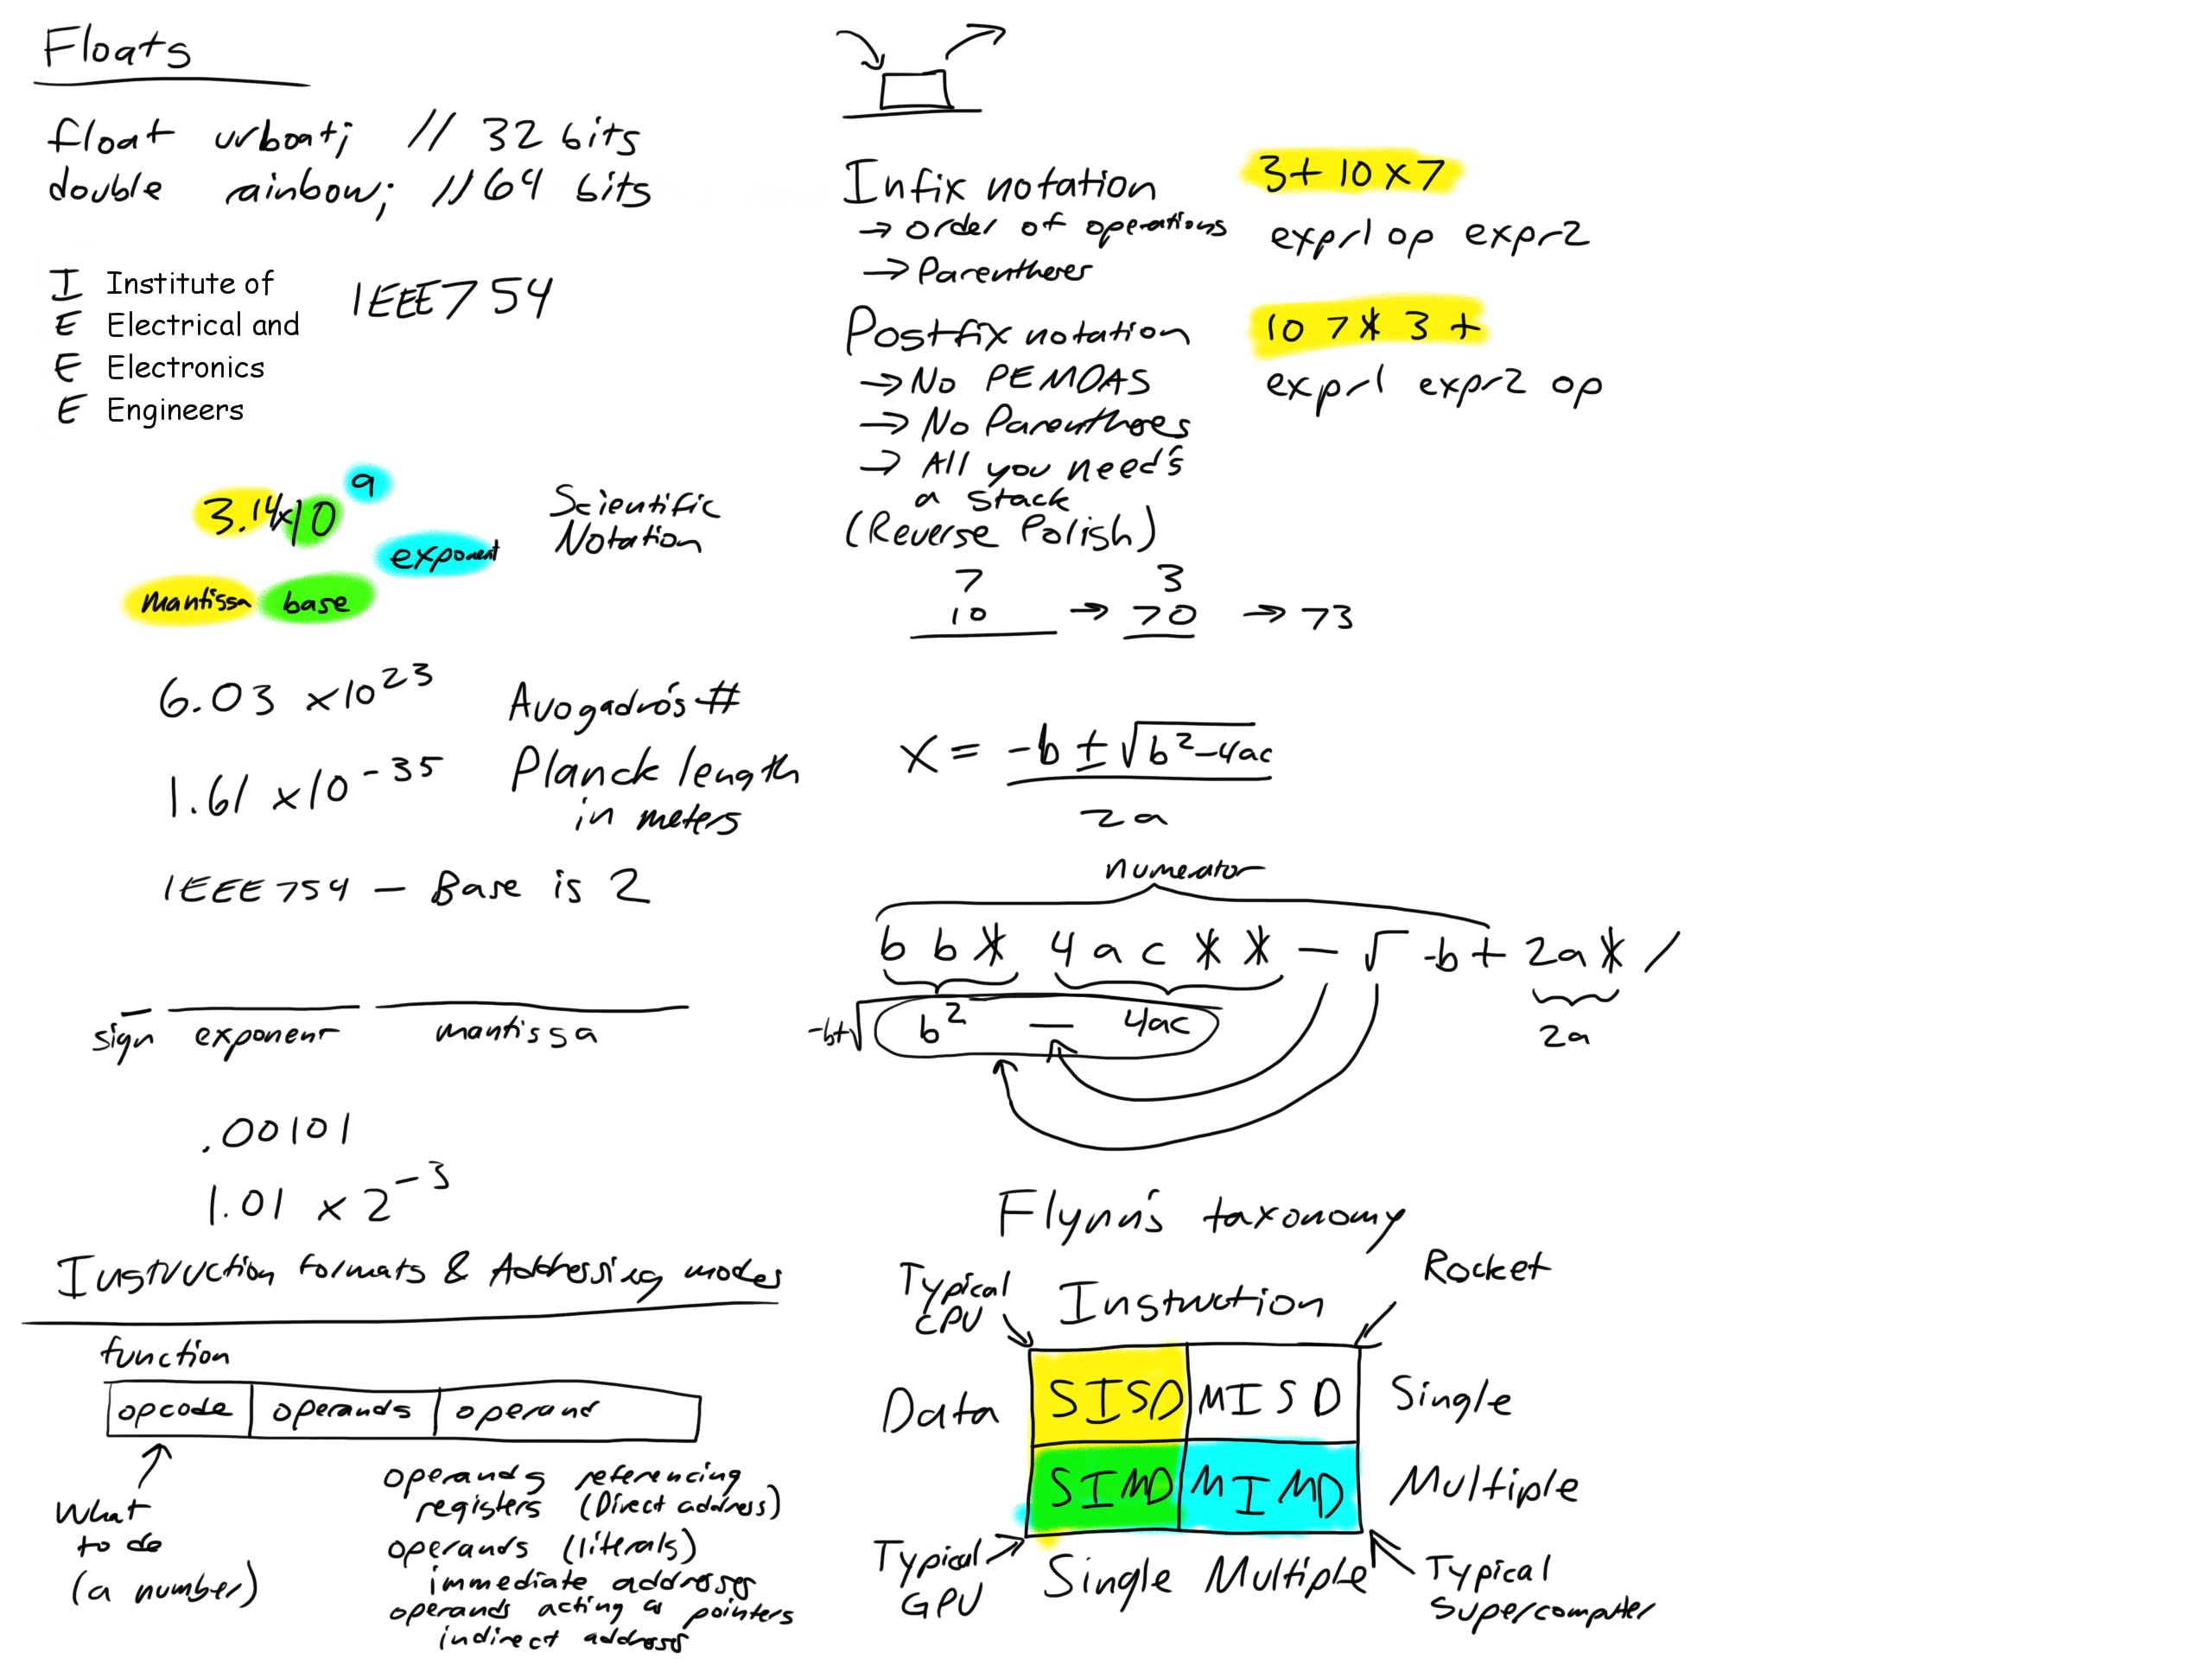 Floats
float urboat; // 32 bits
double rainbow; // 64 bits
I Institute of
E Electrical and
E Electronics
E Engineers
IEEE 754
3.14x10^9
Scientific
Notation
exponent
mantissa base
6.03 x10^23 Avogadro's #
1.61 x10^-35 Planck length
in meters
IEEE 754 — Base is 2
sign exponent mantissa
.00101
1.01 x 2^-3
Instruction formats & Addressing modes
function
opcode operands operand
What
to do
(a number)
operands referencing
registers (Direct address)
operands (literals)
immediate addresses
operands acting as pointers
indirect addresses
Infix notation 3+ 10 x 7
→ order of operations expr1 op expr2
→ Parentheses
Postfix notation 10 7 * 3 +
→ No PEMDAS expr1 expr2 op
→ No Parentheses
→ All you need's
a stack
(Reverse Polish)
7 3
10 → 70 → 73
x = -b ± √b²-4ac
2a
numerator
b b * 4 a c * * — √ -b + 2a * /
-b+√ b² — 4ac 2a
Flynn's taxonomy
Rocket
Typical
CPU
Instruction
Data SISD MISD Single
SIMD MIMD Multiple
Typical
GPU
Single Multiple
Typical
Supercomputer